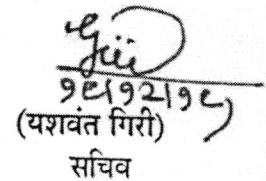 १९।१२।१९
(यशवंत गिरी)
सचिव